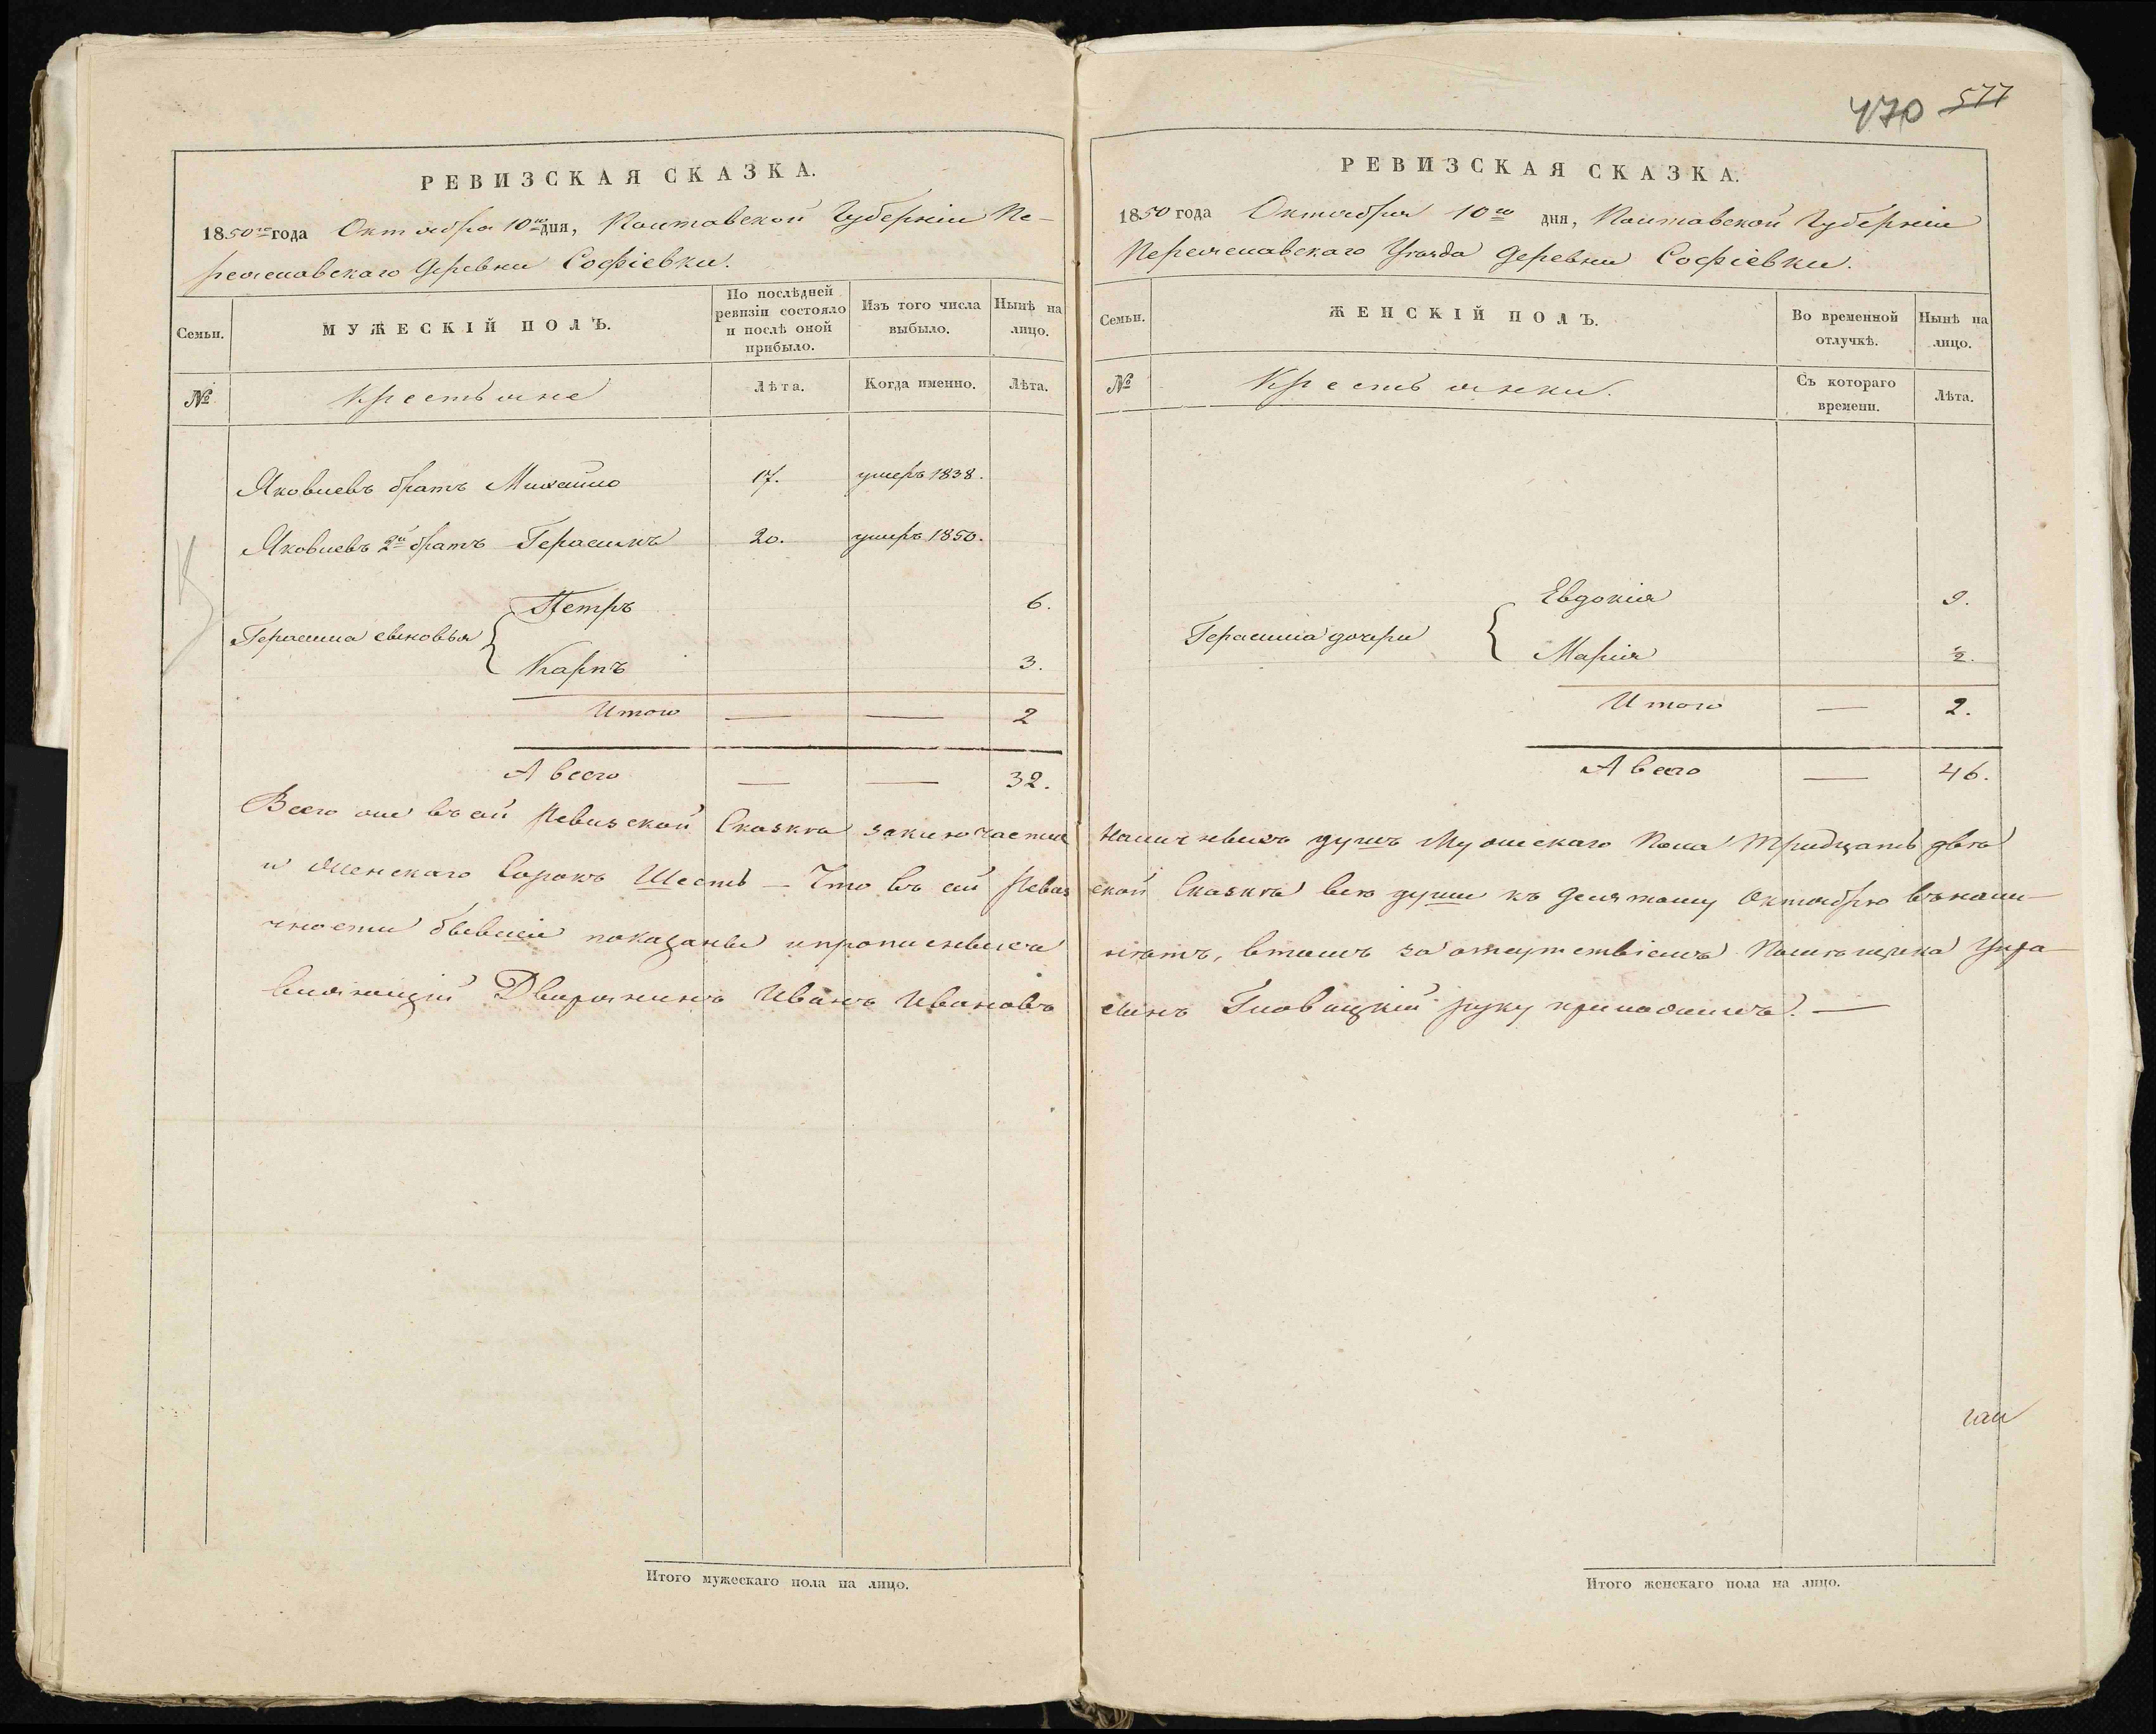 470 577
РЕВИЗСКАЯ СКАЗКА.
1850го года Октября 10го дня, Полтавской Губерніи Пе-
реяславскаго Деревни Софіевки.
Семьи.
МУЖЕСКІЙ ПОЛЪ.
По послѣдней ревизіи состояло и послѣ оной прибыло.
Изъ того числа выбыло.
Нынѣ на лицо.
№
Крестьяне
Лѣта.
Когда именно.
Лѣта.
Яковлевъ братъ Михайло 17. умеръ 1838.
Яковлевъ 2й братъ Герасимъ 20. умеръ 1850.
Герасима сыновья
Петръ 6.
Карпъ 3.
Итого — — 2
А всего — — 32.
РЕВИЗСКАЯ СКАЗКА.
1850 года Октября 10го дня, Полтавской Губерніи
Переяславскаго Уѣзда Деревни Софіевки.
Семьи.
ЖЕНСКІЙ ПОЛЪ.
Во временной отлучкѣ.
Нынѣ на лицо.
№
Крестьянки.
Съ котораго времени.
Лѣта.
Герасима дочери
Евдокія 9.
Марія ½.
Итого — 2.
А всего — 46.
Всего же въ сій Ревизской Сказкѣ заключается наличныхъ душъ Мужескаго Пола Тридцать двѣ
и Женскаго Сорокъ Шесть — Что въ сій Ревизской Сказкѣ всѣ души къ Десятому Октябрю въ нали-
чности бывшіи показаны и прописныхъ нѣтъ, втомъ за отсутствіемъ Помѣщика Упра-
вляющій Дворянинъ Иванъ Ивановъ сынъ Гловацкій руку приложилъ. —
Итого мужескаго пола на лицо.
Итого женскаго пола на лицо.